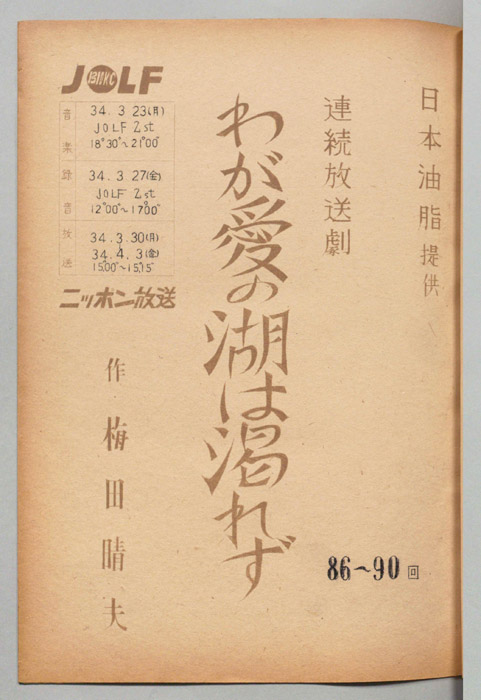 日本油脂提供
連続放送劇
わが愛の湖は渇れず
86～90回
JOLF
音楽
34.3 23(月)
JOLF 2st
18°30"~21°00"
録音
34.3 27(金)
JOLF 2st
12°00"~17°00"
放送
34.3.30(月)
34.4.3(金)
15°00"~15°15"
ニッポン放送
作 梅田晴夫